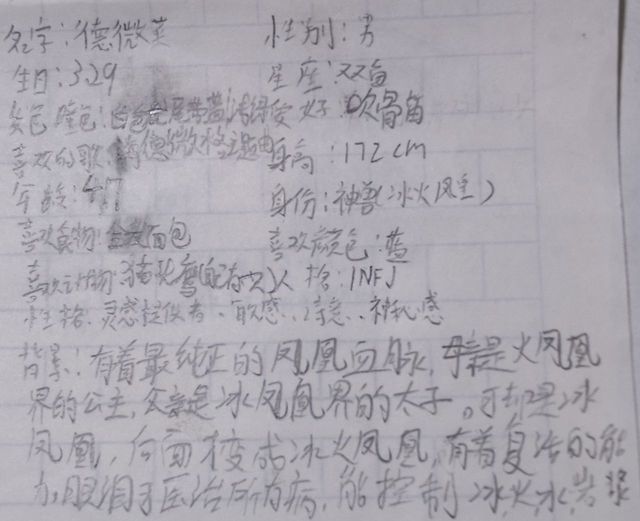 名字:德微英 性别:男
生日:3.29 星座:双鱼
发色 瞳色:白色 尾带蓝 浅绿 爱好:吹骨笛
喜欢的歌: 德微 主题曲 身高:172cm
年龄:47 身份:神兽(冰火凤主)
喜欢食物:全麦面包 喜欢颜色:蓝
喜欢动物:猫 鹰 人格:INFJ
性格:灵感提供者、敏感、诗意、神秘感
背景:有着最纯正的凤凰血脉,母亲是火凤凰
界的公主,父亲是冰凤凰界的太子。可却是冰
凤凰,后面 变成冰火凤凰,有着复活的能
力,眼泪可医治所有病,能控制冰,火,水,岩浆